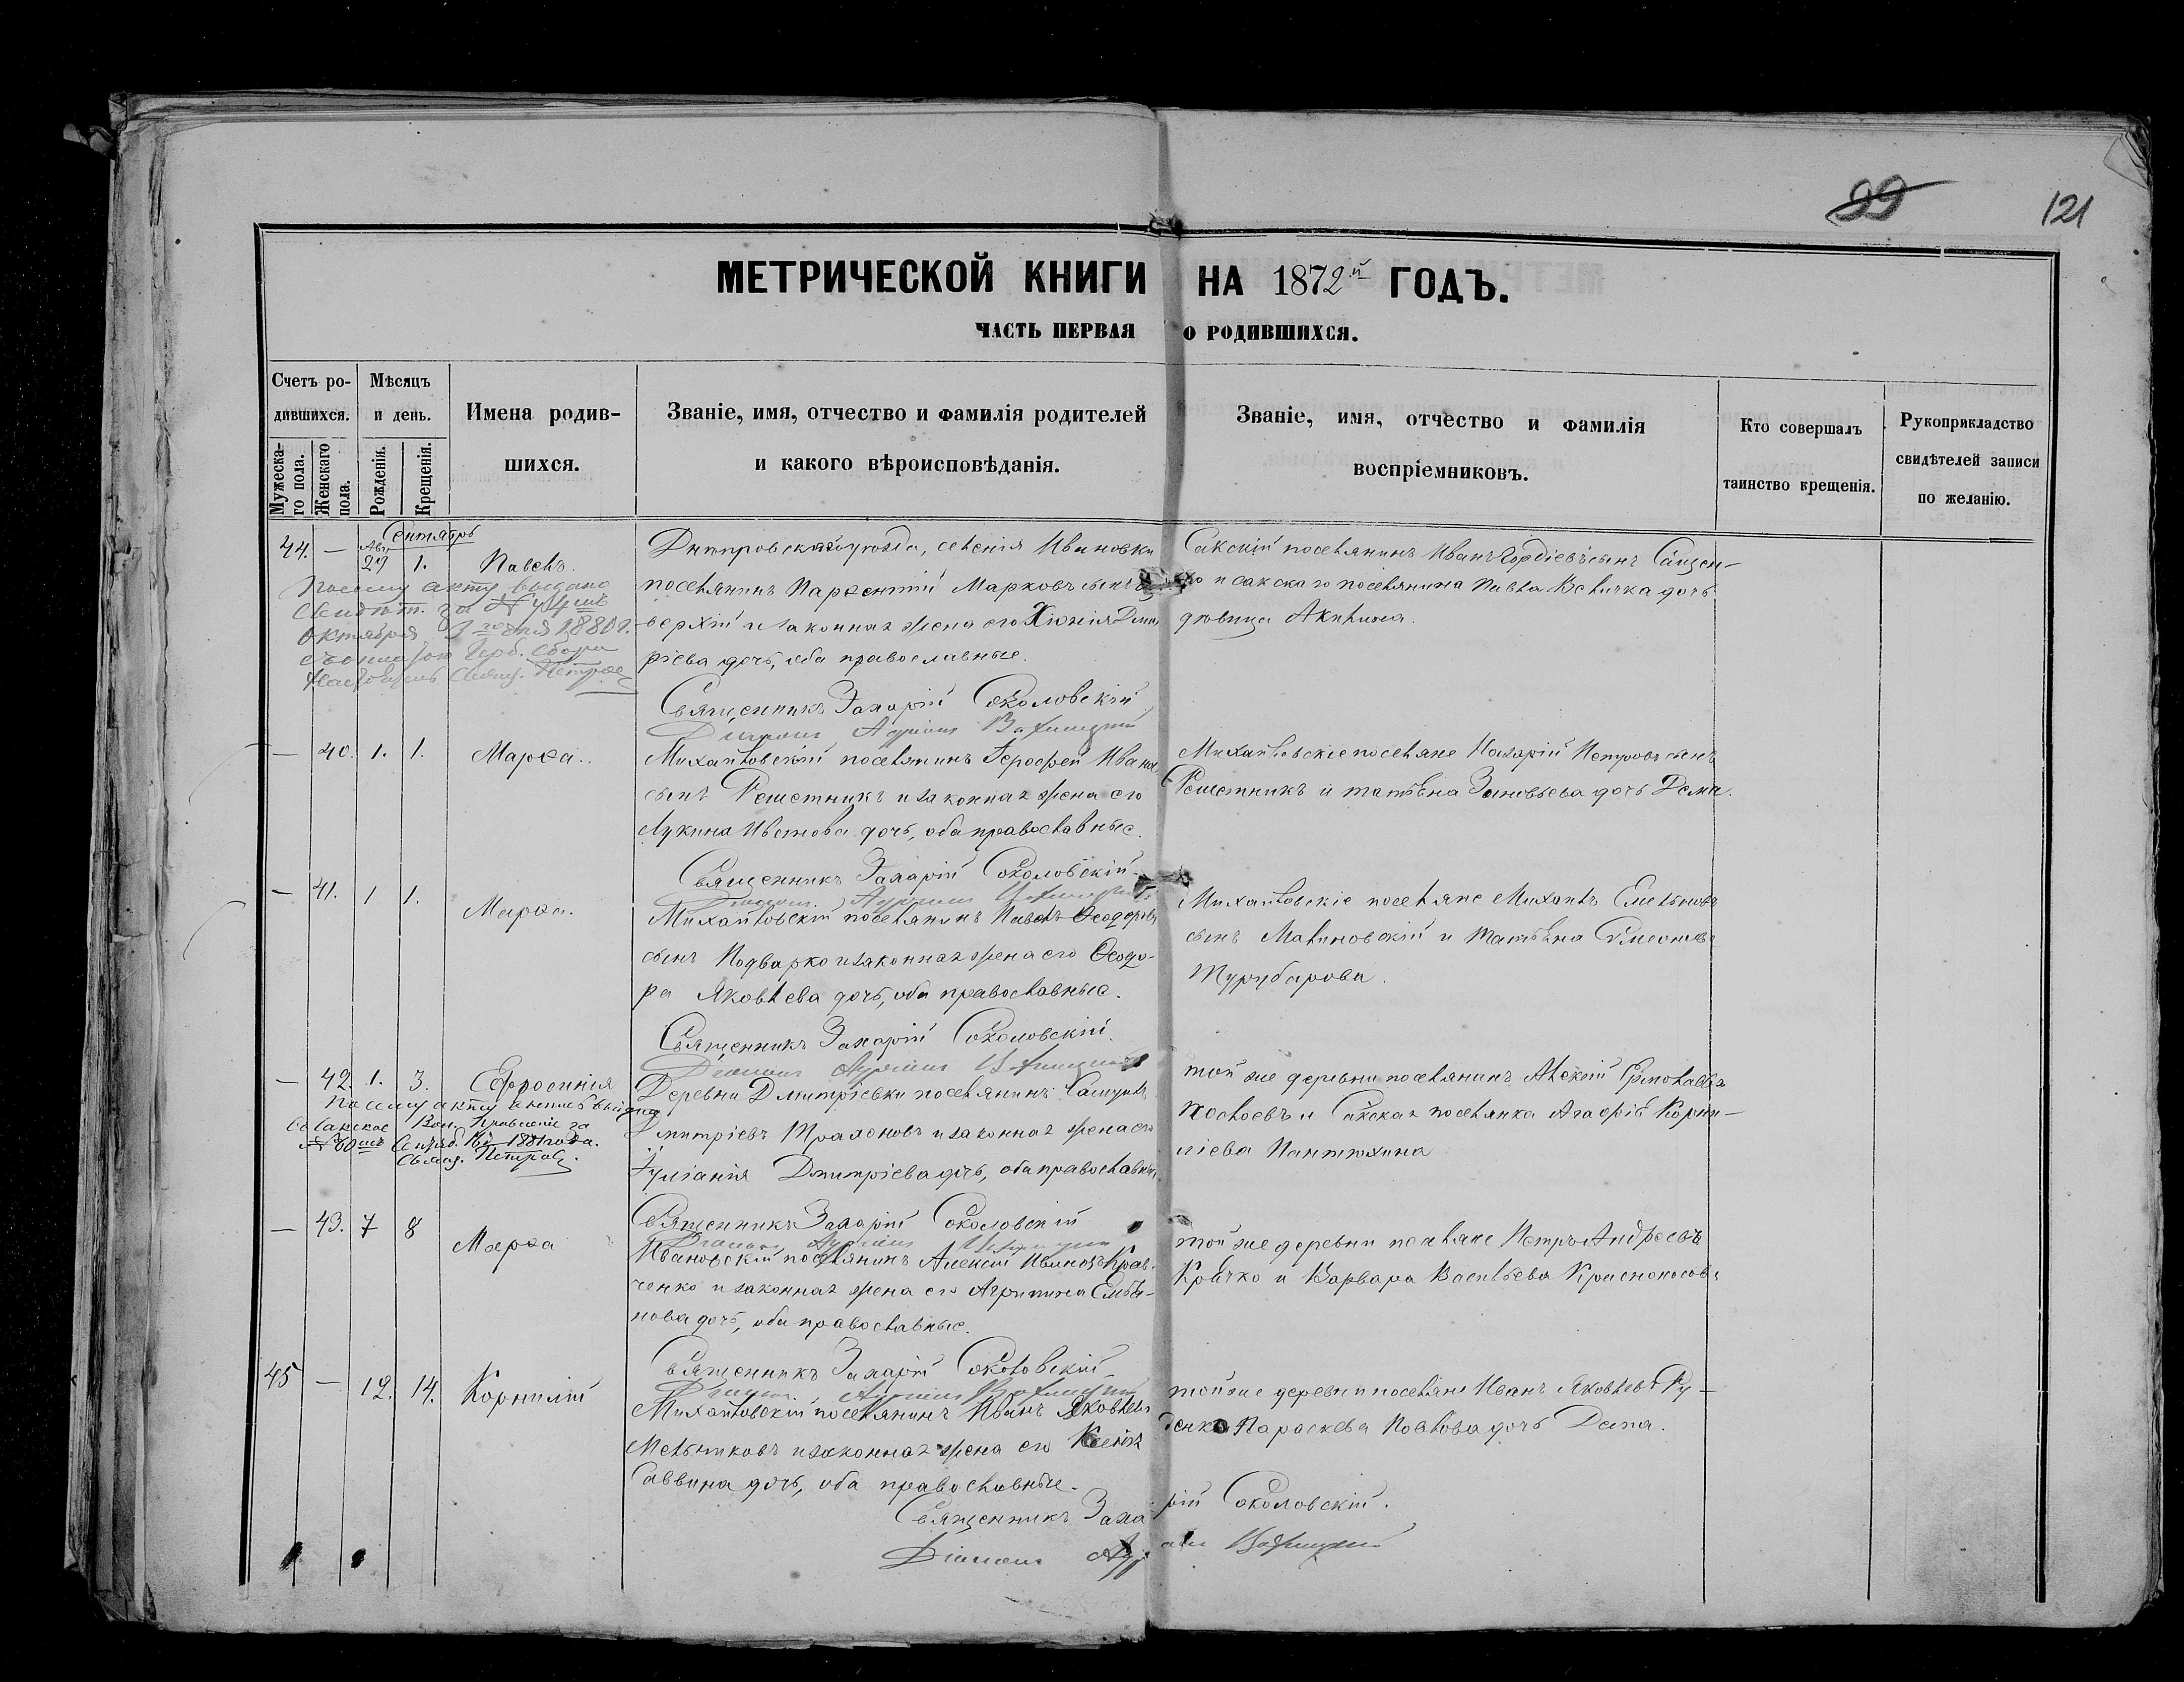 99 121
МЕТРИЧЕСКОЙ КНИГИ НА 1872й ГОДЪ.
ЧАСТЬ ПЕРВАЯ О РОДИВШИХСЯ.
Счетъ ро-
дившихся.
Мужеска-
го пола.
Женскаго
пола.
Мѣсяцъ
и день.
Рожденія.
Крещенія.
Имена родив-
шихся.
Званіе, имя, отчество и фамилія родителей
и какого вѣроисповѣданія.
Званіе, имя, отчество и фамилія
воспріемниковъ.
Кто совершалъ
таинство крещенія.
Рукоприкладство
свидѣтелей записи
по желанію.
Сентябрь
44. — Авг. 29 1. Павелъ.
По сему акту выдано
свидѣт. за №
октября 3го дня 1880 г.
Герб. сбора
Свящ. Петровъ
Днѣпровскаго уѣзда, селенія Ивановки
поселянинъ Парѳентій Марковъ сынъ
верхій и законная жена его Хіонія Дмит
ріева дочь, оба православные.
Священникъ Захарій Соколовскій
Діаконъ
Сакскій поселянинъ Иванъ Гордіевъ сынъ Сащен-
ко и сакскаго поселянина Павла Величка дочь
дѣвица Акилина.
— 40. 1. 1. Марѳа.
Михайловскій поселянинъ Іероѳей Ивановъ
сынъ Решетникъ и законная жена его
Лукина дочь, оба православные.
Священникъ Захарій Соколовскій
Діаконъ
Михайловскіе поселяне Назарій Петровъ сынъ
Решетникъ и Татьяна Зиновьева дочь
— 41. 1 1. Марѳа.
Михайловскій поселянинъ Павелъ Ѳеодоровъ
сынъ Подварко и законная жена его Ѳеодо-
ра Яковлева дочь, оба православные.
Священникъ Захарій Соколовскій
Діаконъ
Михайловскіе поселяне Михаилъ Емельяновъ
сынъ Малиновскій и Татьяна Симеонова
Турубарова.
— 42. 1. 3. Евфросинія
По сему акту выпись выдана
Вол. Правленіе за
№ 60 Сентяб. 1881 года.
Свящ. Петровъ.
Деревни Дмитріевки поселянинъ
Дмитріевъ и законная жена его
Іуліанія Дмитріева дочь, оба православные
Священникъ Захарій Соколовскій
Діаконъ
той же деревни поселянинъ Алексій Ермолаевъ
и Сакская поселянка Агафія Корни-
ліева Пантюхина
— 43. 7 8 Марѳа
Ивановскій поселянинъ Алексій Ивановъ Крав-
ченко и законная жена его Агрипина Емелья-
нова дочь, оба православные.
Священникъ Захарій Соколовскій
Діаконъ
той же деревни поселяне Петръ Андреевъ
Кричко и Варвара Васильева Красноносова
45 — 12. 14. Корнилій
Михайловскій поселянинъ Иванъ Яковлевъ
Мельниковъ и законная жена его Ксенія
Саввина дочь, оба православные.
Священникъ Захарій Соколовскій.
Діаконъ
той же деревни поселяне Иванъ Яковлевъ Ру-
денко Параскева Павлова дочь